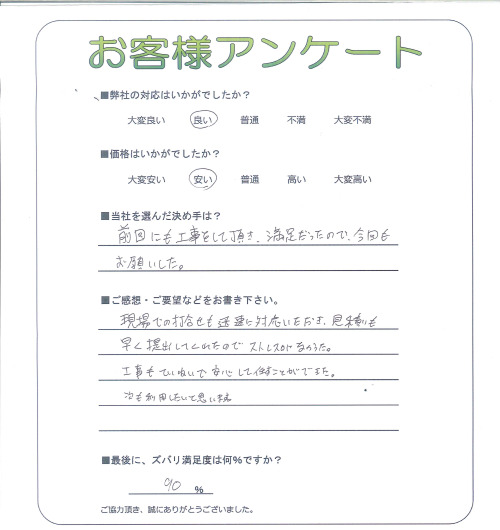 お客様アンケート
■弊社の対応はいかがでしたか?
大変良い 良い 普通 不満 大変不満
■価格はいかがでしたか?
大変安い 安い 普通 高い 大変高い
■当社を選んだ決め手は?
前回にも工事をして頂き、満足だったので、今回も
お願いした。
■ご感想・ご要望などをお書き下さい。
現場での打合せも迅速に対応いただき、見積りも
早く提出してくれたのでストレスがなかった。
工事もていねいで安心して任すことができた。
次も利用したいと思います
■最後に、ズバリ満足度は何%ですか?
90 %
ご協力頂き、誠にありがとうございました。